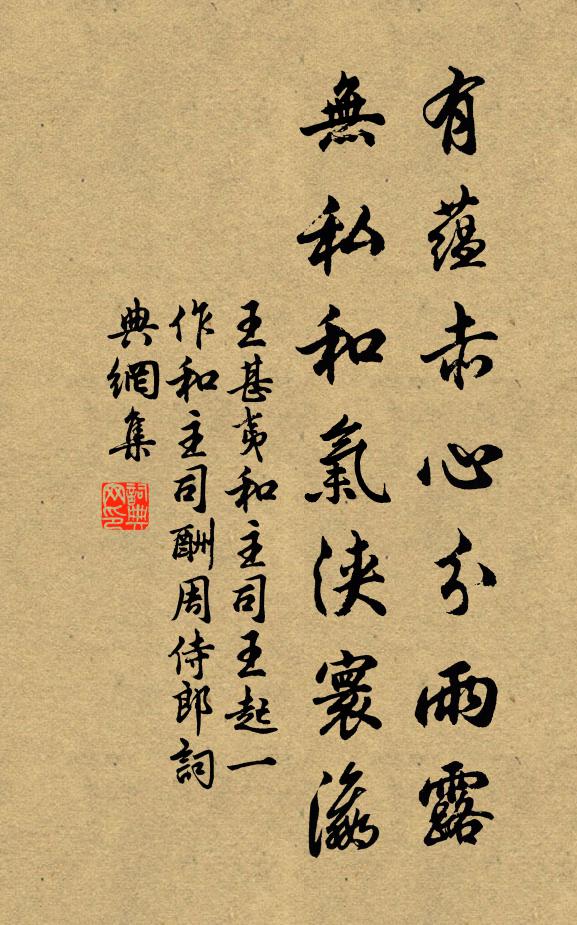 有蘊赤心分雨露
無私和氣浹寰瀛
王甚夷和主司王起一
作和主司酬周侍郎詞
典網集
詞典
網印